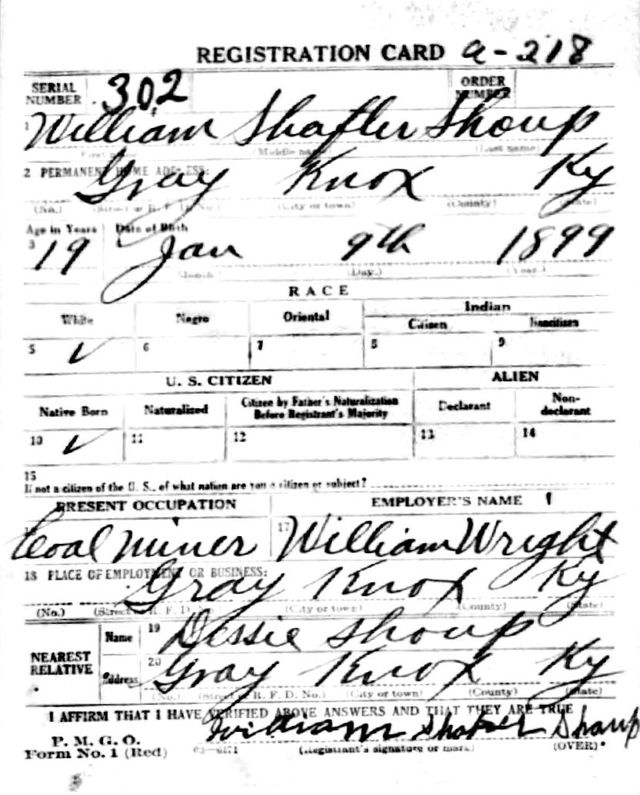 REGISTRATION CARD a-218
SERIAL NUMBER 302 ORDER NUMBER
1 William Shafler Shoup
(Middle name) (Last name)
2 PERMANENT HOME ADDRESS:
Gray Knox Ky
(No.) (Street or R. F. D. No.) (City or town) (County) (State)
Age in Years Date of Birth
3 19 Jan 9th 1899
(Month) (Day.) (Year.)
RACE
White Negro Oriental Indian
Citizen Noncitizen
5 ✓ 6 7 8 9
U. S. CITIZEN ALIEN
Native Born Naturalized Citizen by Father's Naturalization Before Registrant's Majority Declarant Non-declarant
10 ✓ 11 12 13 14
15
If not a citizen of the U. S., of what nation are you a citizen or subject?
PRESENT OCCUPATION EMPLOYER'S NAME
Coal Miner 17 William Wright
18 PLACE OF EMPLOYMENT OR BUSINESS:
Gray Knox Ky
(No.) (Street or R. F. D. No.) (City or town) (County) (State)
NEAREST RELATIVE Name 19 Dessie Shoup
Address 20 Gray Knox Ky
(No.) (Street or R. F. D. No.) (City or town) (County) (State)
I AFFIRM THAT I HAVE VERIFIED ABOVE ANSWERS AND THAT THEY ARE TRUE
P. M. G. O.
Form No. 1 (Red) William Shafer Shoup
(Registrant's signature or mark) (OVER)